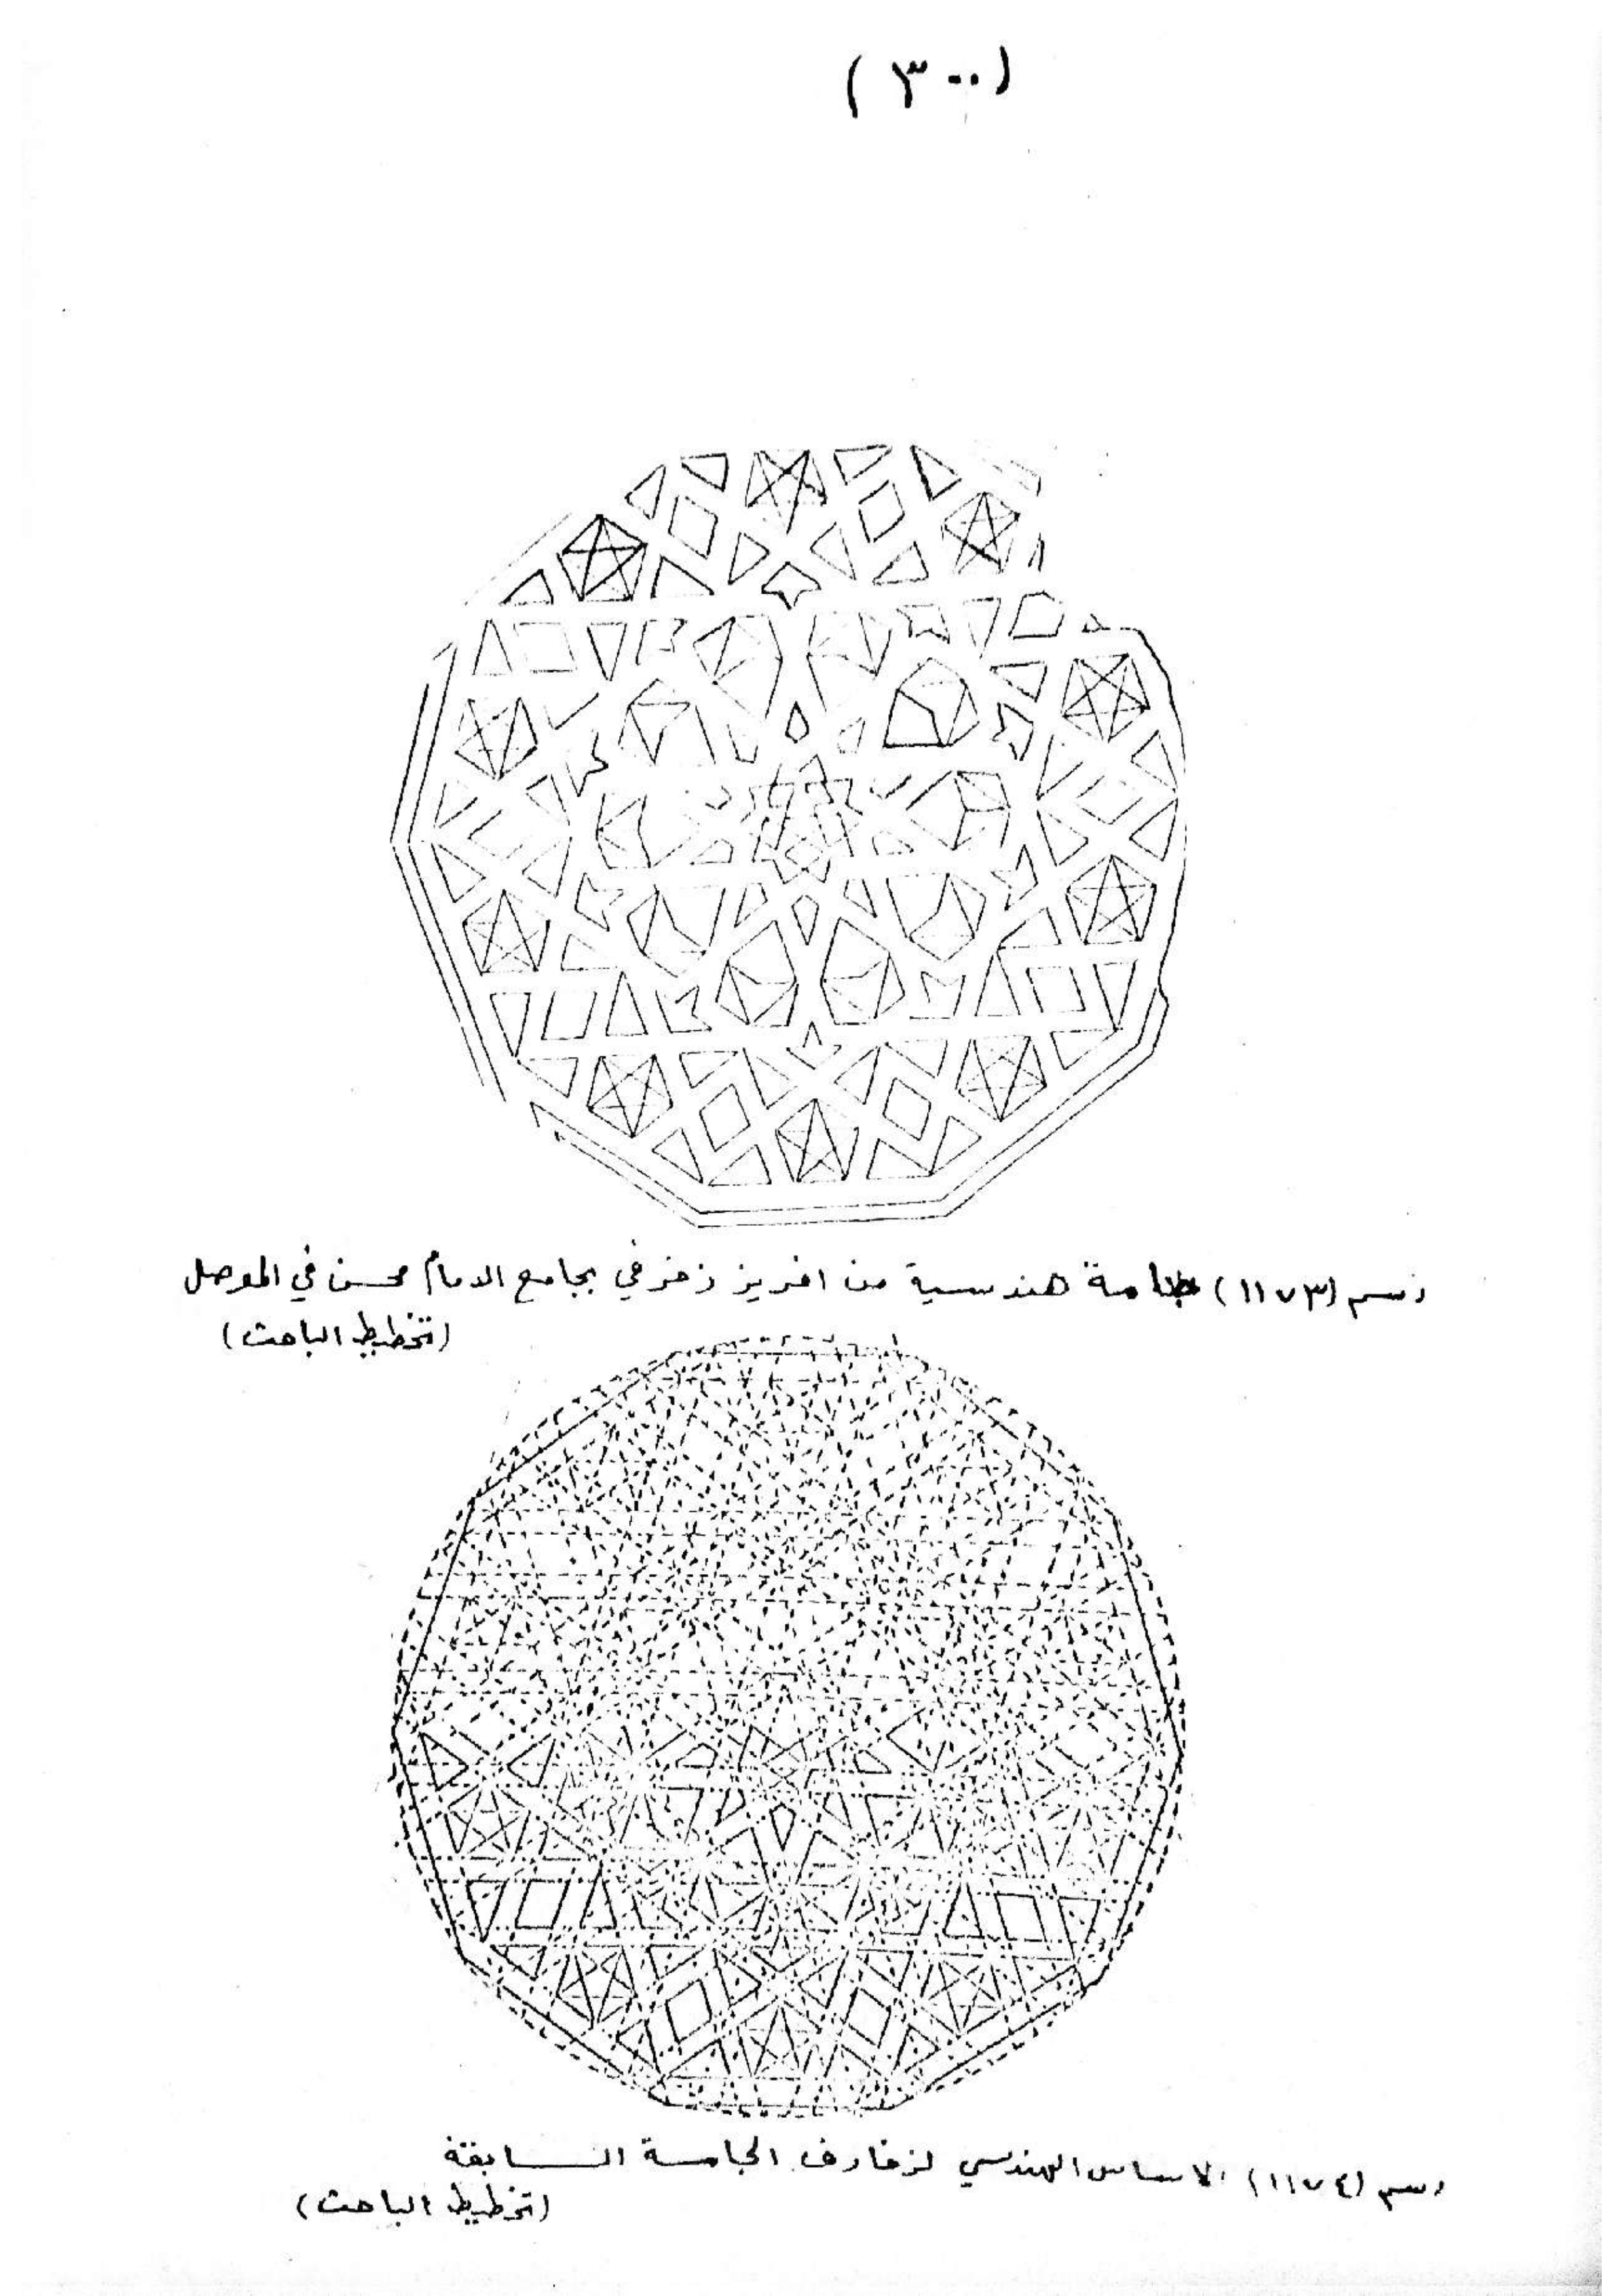 (٣٠٠)
رسم (١١٧٣) جامة هندسية من افريز زخرفي بجامع الامام محسن في الموصل
(تخطيط الباحث)
رسم (١١٧٤) الاساس الهندسي لزخارف الجامة السابقة
(تخطيط الباحث)